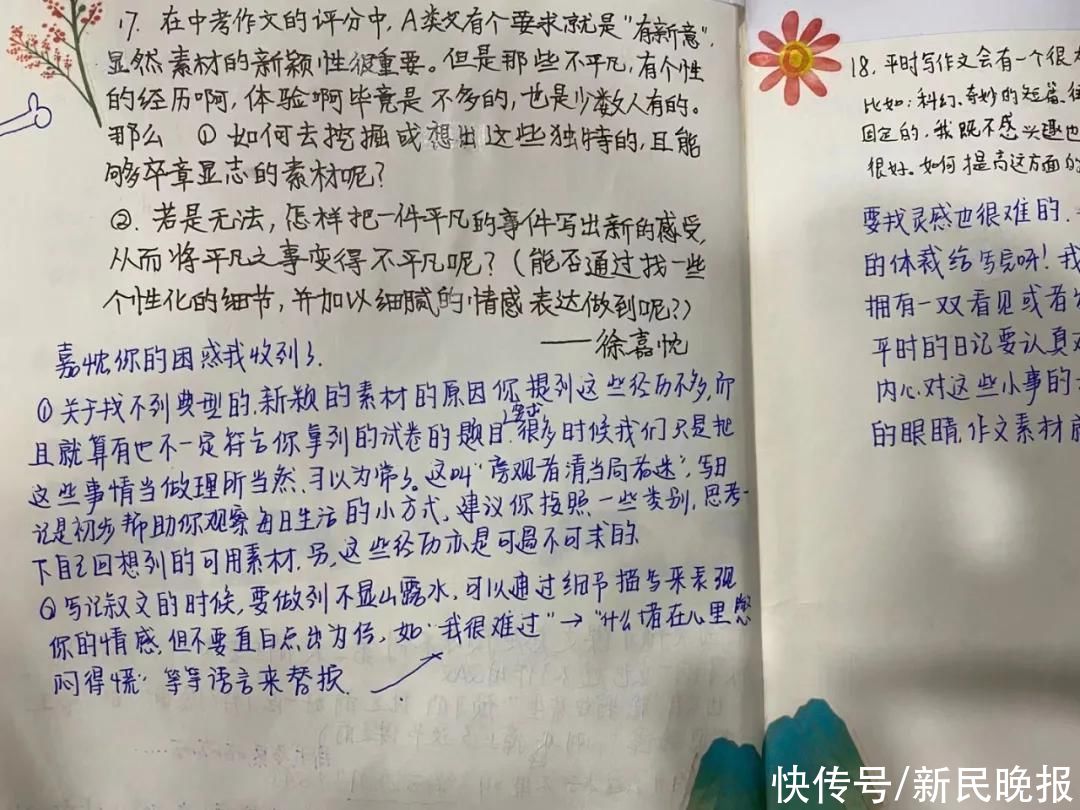 17. 在中考作文的评分中, A类文有个要求就是"有新意",
显然素材的新颖性很重要。但是那些不平凡,有个性
的经历啊,体验啊毕竟是不多的,也是少数人有的。
那么 ①如何去挖掘或想出这些独特的,且能
够卒章显志的素材呢?
②. 若是无法,怎样把一件平凡的事件写出新的感受,
从而将平凡之事变得不平凡呢?(能否通过找一些
个性化的细节,并加以细腻的情感表达做到呢?)
——徐嘉忱
嘉忱,你的困惑我收到了.
①关于找不到典型的,新颖的素材的原因你提到这些经历不多,而
且就算有也不一定符合你拿到的试卷的题目要求.很多时候我们只是把
这些事情当做理所当然,习以为常了。这叫"旁观者清当局者迷",写日
记是初步帮助你观察每日生活的小方式,建议你按照一些类别,思考一
下自己回想到的可用素材.另,这些经历亦是可遇不可求的.
②写记叙文的时候,要做到不显山露水,可以通过细节描写来表现
你的情感.但不要直白点出为何,如"我很难过"→"什么堵在心里憋
闷得慌"等等语言来替换.
18. 平时写作文会有一个很
比如:科幻、奇妙的短篇,
固定的,我既不感兴趣也
很好。如何提高这方面的
要找灵感也很难的.
的体裁给写完呀!我
拥有一双看见或者
平时的日记要认真
内心.对这些小事的
的眼睛,作文素材
快传号/新民晚报